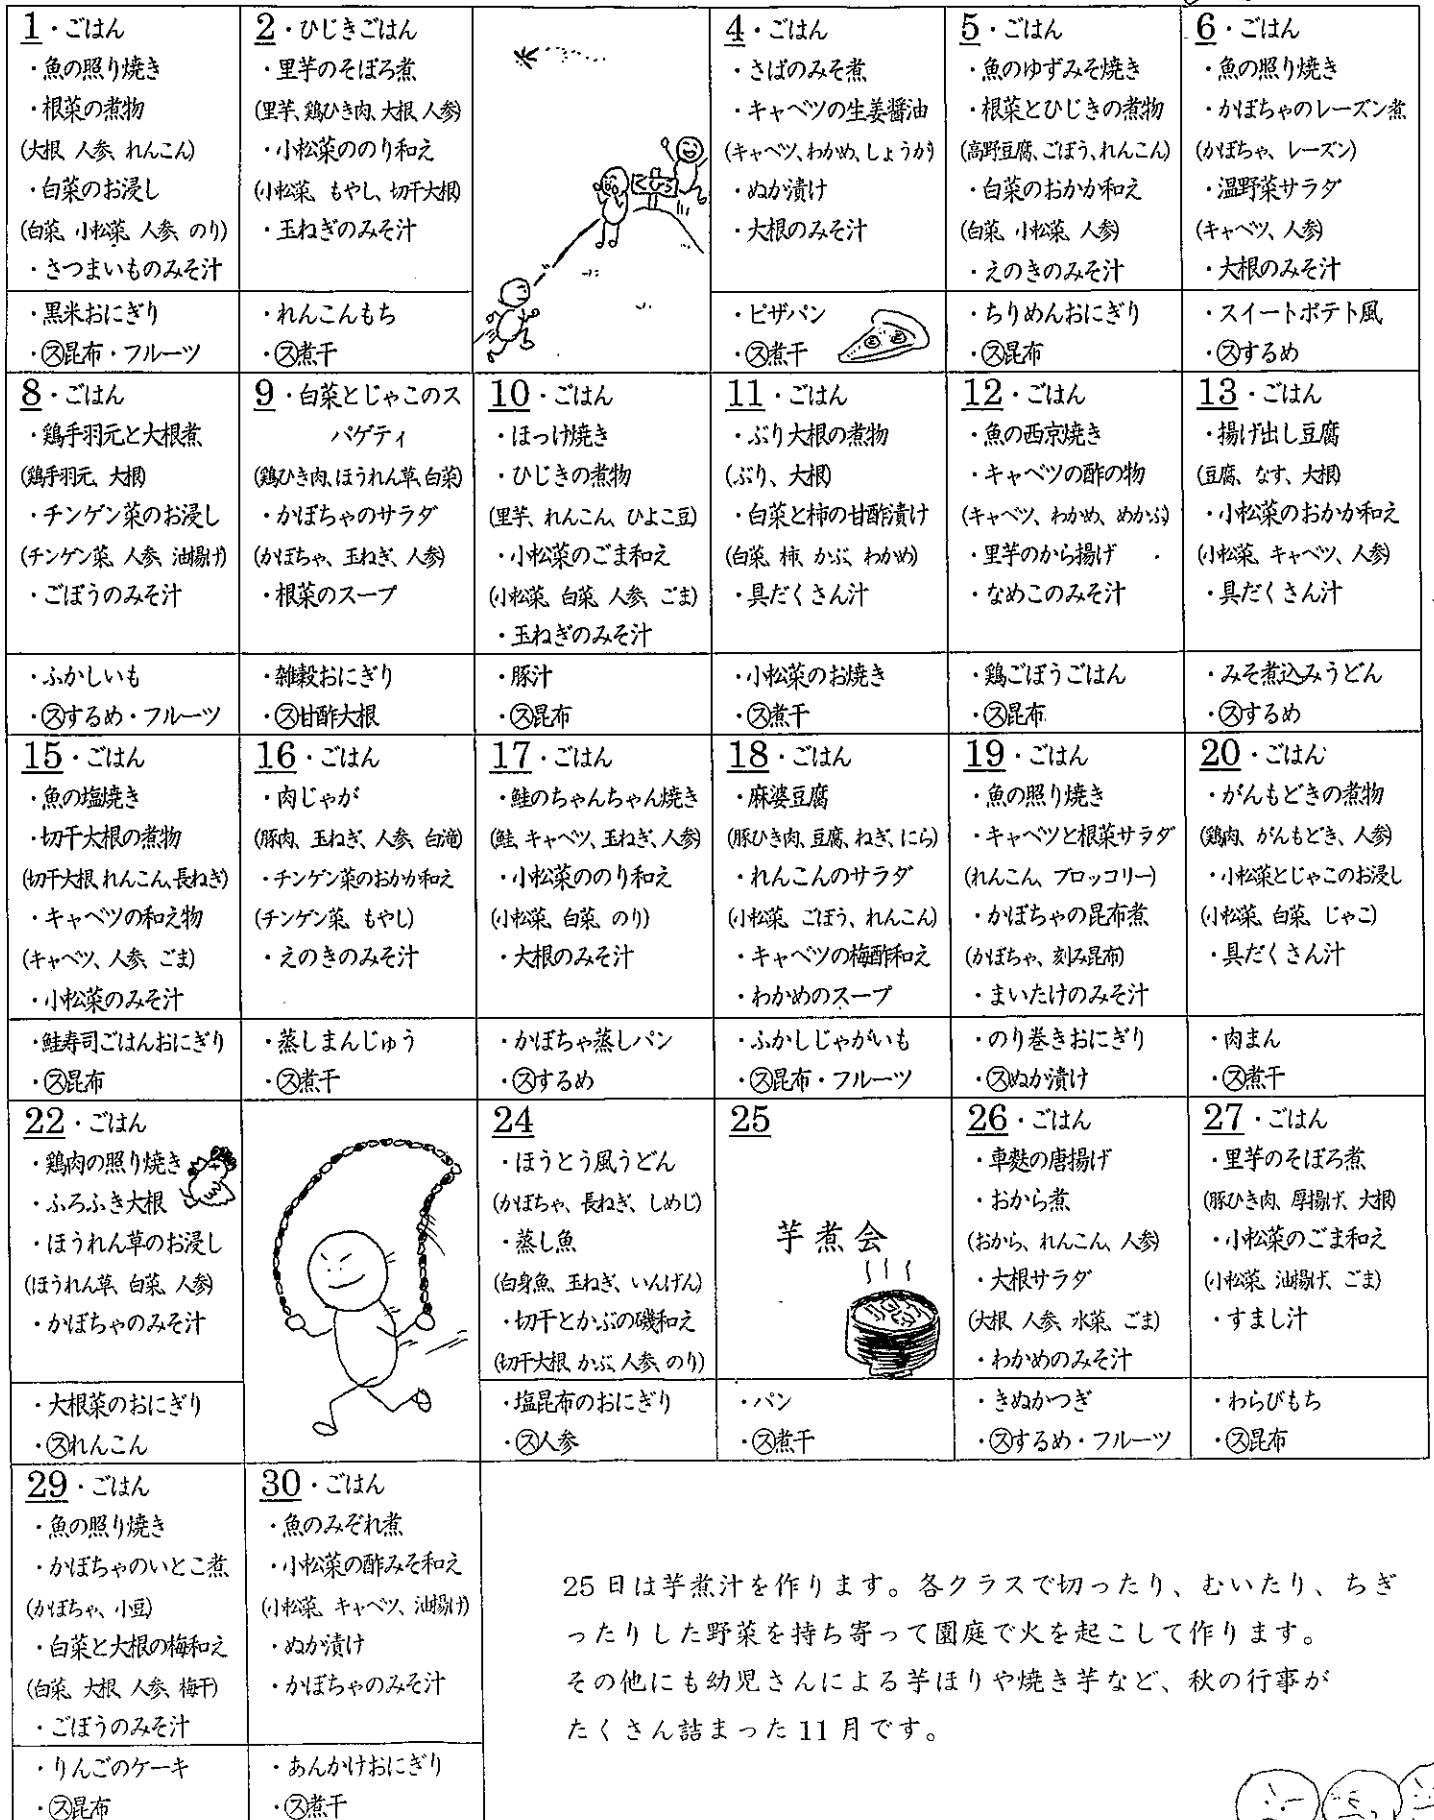 1・ごはん
・魚の照り焼き
・根菜の煮物
(大根、人参、れんこん)
・白菜のお浸し
(白菜、小松菜、人参、のり)
・さつまいものみそ汁
・黒米おにぎり
・㋜昆布・フルーツ
2・ひじきごはん
・里芋のそぼろ煮
(里芋、鶏ひき肉、大根、人参)
・小松菜ののり和え
(小松菜、もやし、切干大根)
・玉ねぎのみそ汁
・れんこんもち
・㋜煮干
4・ごはん
・さばのみそ煮
・キャベツの生姜醤油
(キャベツ、わかめ、しょうが)
・ぬか漬け
・大根のみそ汁
・ピザパン
・㋜煮干
5・ごはん
・魚のゆずみそ焼き
・根菜とひじきの煮物
(高野豆腐、ごぼう、れんこん)
・白菜のおかか和え
(白菜、小松菜、人参)
・えのきのみそ汁
・ちりめんおにぎり
・㋜昆布
6・ごはん
・魚の照り焼き
・かぼちゃのレーズン煮
(かぼちゃ、レーズン)
・温野菜サラダ
(キャベツ、人参)
・大根のみそ汁
・スイートポテト風
・㋜するめ
8・ごはん
・鶏手羽元と大根煮
(鶏手羽元、大根)
・チンゲン菜のお浸し
(チンゲン菜、人参、油揚げ)
・ごぼうのみそ汁
・ふかしいも
・㋜するめ・フルーツ
9・白菜とじゃこのス
パゲティ
(鶏ひき肉、ほうれん草、白菜)
・かぼちゃのサラダ
(かぼちゃ、玉ねぎ、人参)
・根菜のスープ
・雑穀おにぎり
・㋜甘酢大根
10・ごはん
・ほっけ焼き
・ひじきの煮物
(里芋、れんこん、ひよこ豆)
・小松菜のごま和え
(小松菜、白菜、人参、ごま)
・玉ねぎのみそ汁
・豚汁
・㋜昆布
11・ごはん
・ぶり大根の煮物
(ぶり、大根)
・白菜と柿の甘酢漬け
(白菜、柿、かぶ、わかめ)
・具だくさん汁
・小松菜のお焼き
・㋜煮干
12・ごはん
・魚の西京焼き
・キャベツの酢の物
(キャベツ、わかめ、めかぶ)
・里芋のから揚げ
・なめこのみそ汁
・鶏ごぼうごはん
・㋜昆布
13・ごはん
・揚げ出し豆腐
(豆腐、なす、大根)
・小松菜のおかか和え
(小松菜、キャベツ、人参)
・具だくさん汁
・みそ煮込みうどん
・㋜するめ
15・ごはん
・魚の塩焼き
・切干大根の煮物
(切干大根、れんこん、長ねぎ)
・キャベツの和え物
(キャベツ、人参、ごま)
・小松菜のみそ汁
・鮭寿司ごはんおにぎり
・㋜昆布
16・ごはん
・肉じゃが
(豚肉、玉ねぎ、人参、白滝)
・チンゲン菜のおかか和え
(チンゲン菜、もやし)
・えのきのみそ汁
・蒸しまんじゅう
・㋜煮干
17・ごはん
・鮭のちゃんちゃん焼き
(鮭、キャベツ、玉ねぎ、人参)
・小松菜ののり和え
(小松菜、白菜、のり)
・大根のみそ汁
・かぼちゃ蒸しパン
・㋜するめ
18・ごはん
・麻婆豆腐
(豚ひき肉、豆腐、ねぎ、にら)
・れんこんのサラダ
(小松菜、ごぼう、れんこん)
・キャベツの梅酢和え
・わかめのスープ
・ふかしじゃがいも
・㋜昆布・フルーツ
19・ごはん
・魚の照り焼き
・キャベツと根菜サラダ
(れんこん、ブロッコリー)
・かぼちゃの昆布煮
(かぼちゃ、刻み昆布)
・まいたけのみそ汁
・のり巻きおにぎり
・㋜ぬか漬け
20・ごはん
・がんもどきの煮物
(鶏肉、がんもどき、人参)
・小松菜とじゃこのお浸し
(小松菜、白菜、じゃこ)
・具だくさん汁
・肉まん
・㋜煮干
22・ごはん
・鶏肉の照り焼き
・ふろふき大根
・ほうれん草のお浸し
(ほうれん草、白菜、人参)
・かぼちゃのみそ汁
・大根菜のおにぎり
・㋜れんこん
24
・ほうとう風うどん
(かぼちゃ、長ねぎ、しめじ)
・蒸し魚
(白身魚、玉ねぎ、いんげん)
・切干とかぶの磯和え
(切干大根、かぶ、人参、のり)
・塩昆布のおにぎり
・㋜人参
25
芋煮会
・パン
・㋜煮干
26・ごはん
・車麩の唐揚げ
・おから煮
(おから、れんこん、人参)
・大根サラダ
(大根、人参、水菜、ごま)
・わかめのみそ汁
・きぬかつぎ
・㋜するめ・フルーツ
27・ごはん
・里芋のそぼろ煮
(豚ひき肉、厚揚げ、大根)
・小松菜のごま和え
(小松菜、油揚げ、ごま)
・すまし汁
・わらびもち
・㋜昆布
29・ごはん
・魚の照り焼き
・かぼちゃのいとこ煮
(かぼちゃ、小豆)
・白菜と大根の梅和え
(白菜、大根、人参、梅干)
・ごぼうのみそ汁
・りんごのケーキ
・㋜昆布
30・ごはん
・魚のみぞれ煮
・小松菜の酢みそ和え
(小松菜、キャベツ、油揚げ)
・ぬか漬け
・かぼちゃのみそ汁
・あんかけおにぎり
・㋜煮干
25日は芋煮汁を作ります。各クラスで切ったり、むいたり、ちぎ
ったりした野菜を持ち寄って園庭で火を起こして作ります。
その他にも幼児さんによる芋ほりや焼き芋など、秋の行事が
たくさん詰まった11月です。